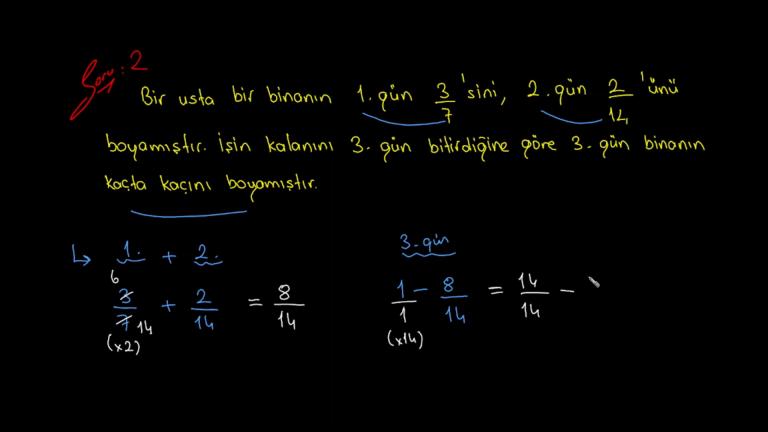 Soru: 2
Bir usta bir binanın 1. gün 3/7 'sini, 2. gün 2/14 'ünü
boyamıştır. İşin kalanını 3. gün bitirdiğine göre 3. gün binanın
kaçta kaçını boyamıştır.
↳ 1. + 2.
6
3/7 14 + 2/14 = 8/14
(x2)
3. gün
1/1 - 8/14 = 14/14 -
(x14)